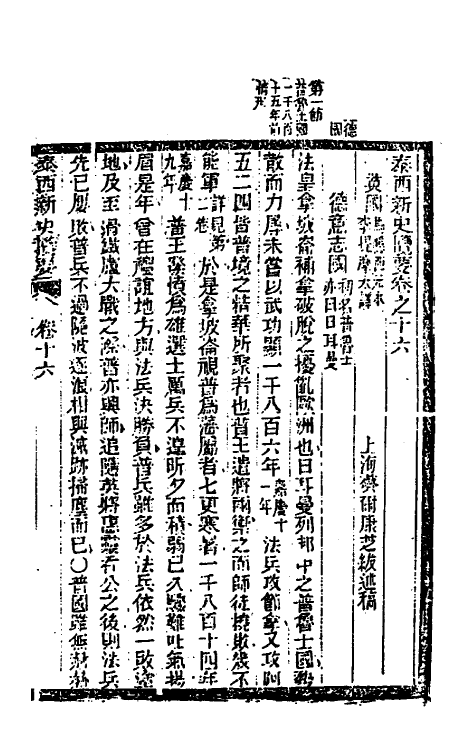 泰西新史攬要卷之十六
英國馬懇西元本
李提摩太譯
上海蔡爾康芝紱述稿
德意志國
初名普魯士
亦曰日耳曼
德國
第一節
普魯士國
一千八百
十五年前
情形
法皇拿坡崙補拿破脫之擾亂歐洲也日耳曼列邦中之普魯士國勢
散而力厚未嘗以武功顯一千八百六年嘉慶十一年法兵攻節拿又攻阿
五二四皆普境之精華所聚者也普王遣將兩禦之而師徒撓敗幾不
能軍詳見第二卷於是拿坡崙視普為藩屬者七更寒暑一千八百十四年
嘉慶十九年普王發憤為雄選士厲兵不遑昕夕而積弱已久驟難吐氣揚
眉是年曾在 地方與法兵決勝負普兵雖多於法兵依然一敗塗
地及至滑鐵盧大戰之際普亦興師追隨英將惠靈吞公之後則法兵
先已屢敗普兵不過隨波逐浪相與滅跡掃塵而已〇普國雖無
泰西新史攬要 卷十六